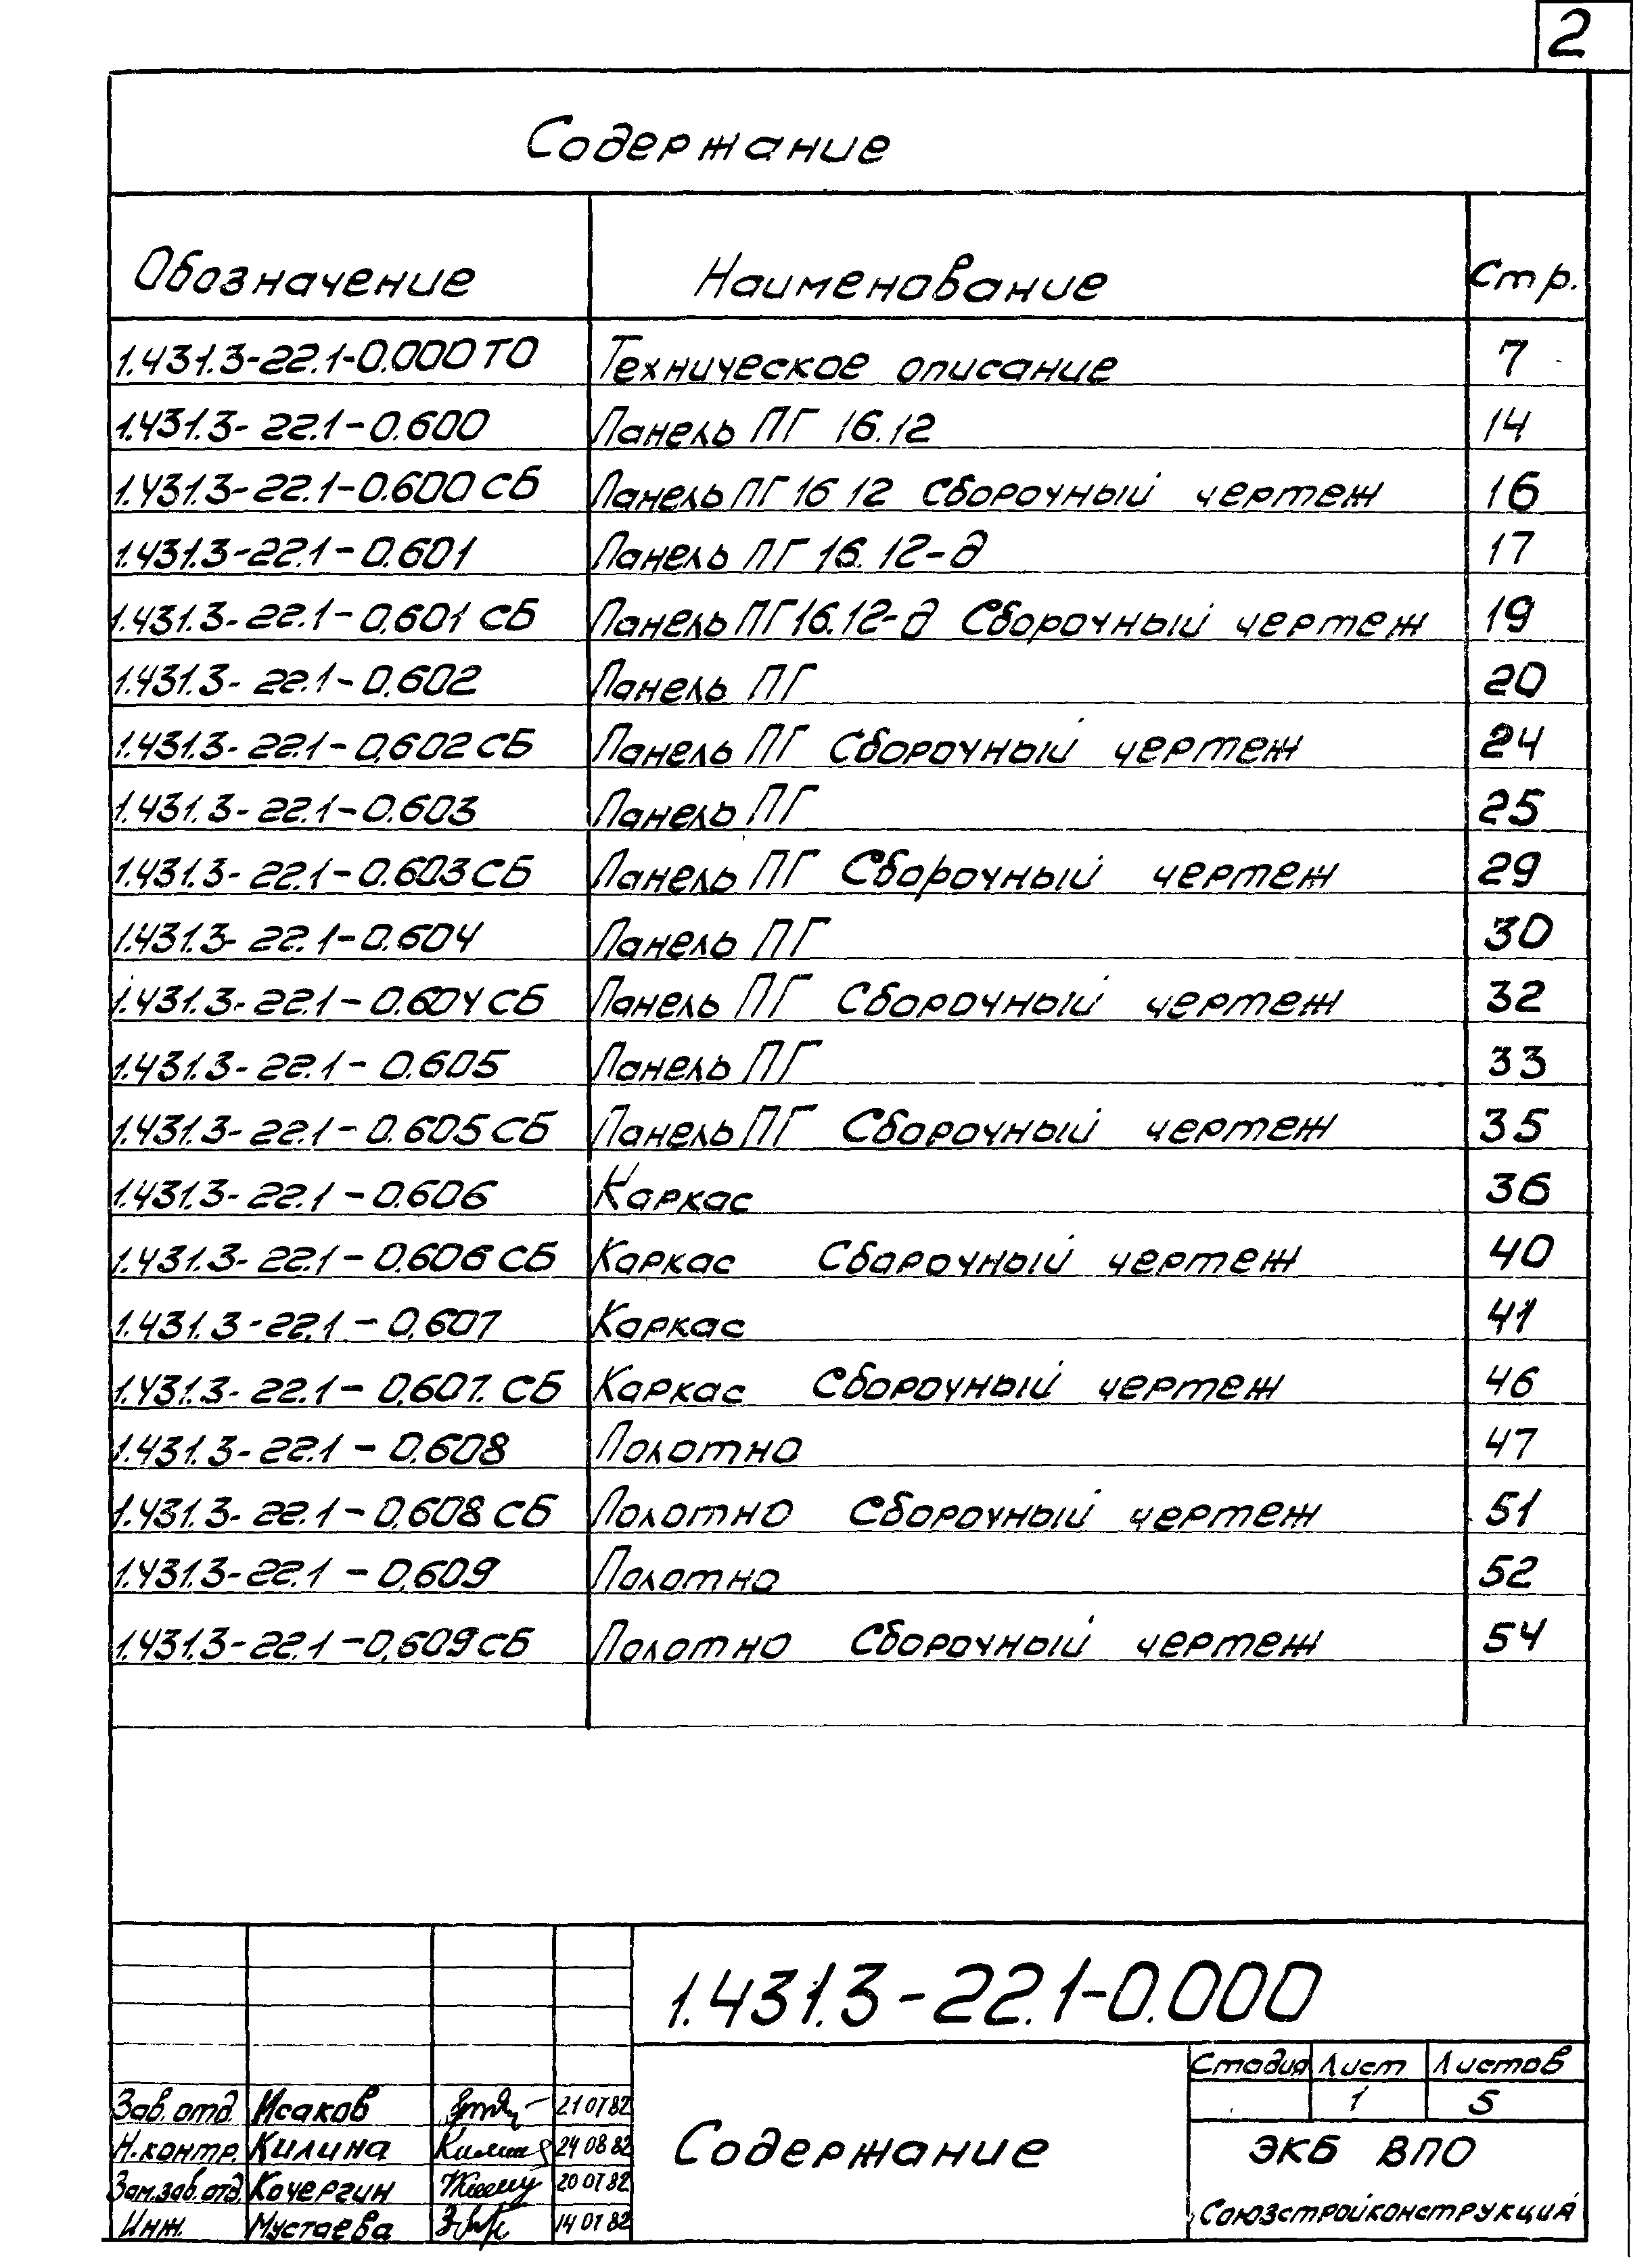 2
Содержание
Обозначение Наименование Стр.
1.431.3-22.1-0.000 ТО Техническое описание 7
1.431.3-22.1-0.600 Панель ПГ 16.12 14
1.431.3-22.1-0.600 СБ Панель ПГ 16 12 Сборочный чертеж 16
1.431.3-22.1-0.601 Панель ПГ 16.12-д 17
1.431.3-22.1-0.601 СБ Панель ПГ 16.12-д Сборочный чертеж 19
1.431.3-22.1-0.602 Панель ПГ 20
1.431.3-22.1-0.602 СБ Панель ПГ Сборочный чертеж 24
1.431.3-22.1-0.603 Панель ПГ 25
1.431.3-22.1-0.603 СБ Панель ПГ Сборочный чертеж 29
1.431.3-22.1-0.604 Панель ПГ 30
1.431.3-22.1-0.604 СБ Панель ПГ Сборочный чертеж 32
1.431.3-22.1-0.605 Панель ПГ 33
1.431.3-22.1-0.605 СБ Панель ПГ Сборочный чертеж 35
1.431.3-22.1-0.606 Каркас 36
1.431.3-22.1-0.606 СБ Каркас Сборочный чертеж 40
1.431.3-22.1-0.607 Каркас 41
1.431.3-22.1-0.607. СБ Каркас Сборочный чертеж 46
1.431.3-22.1-0.608 Полотно 47
1.431.3-22.1-0.608 СБ Полотно Сборочный чертеж 51
1.431.3-22.1-0.609 Полотно 52
1.431.3-22.1-0.609 СБ Полотно Сборочный чертеж 54
1.431.3-22.1-0.000
Стадия Лист Листов
1 5
Зав. отд. Исаков 21 07 82
Н. контр. Килина 24 08 82
Зам. зав. отд. Кочергин 20 07 82
Инж. Мустаева 14 07 82
Содержание
ЭКБ ВПО
Союзстройконструкция